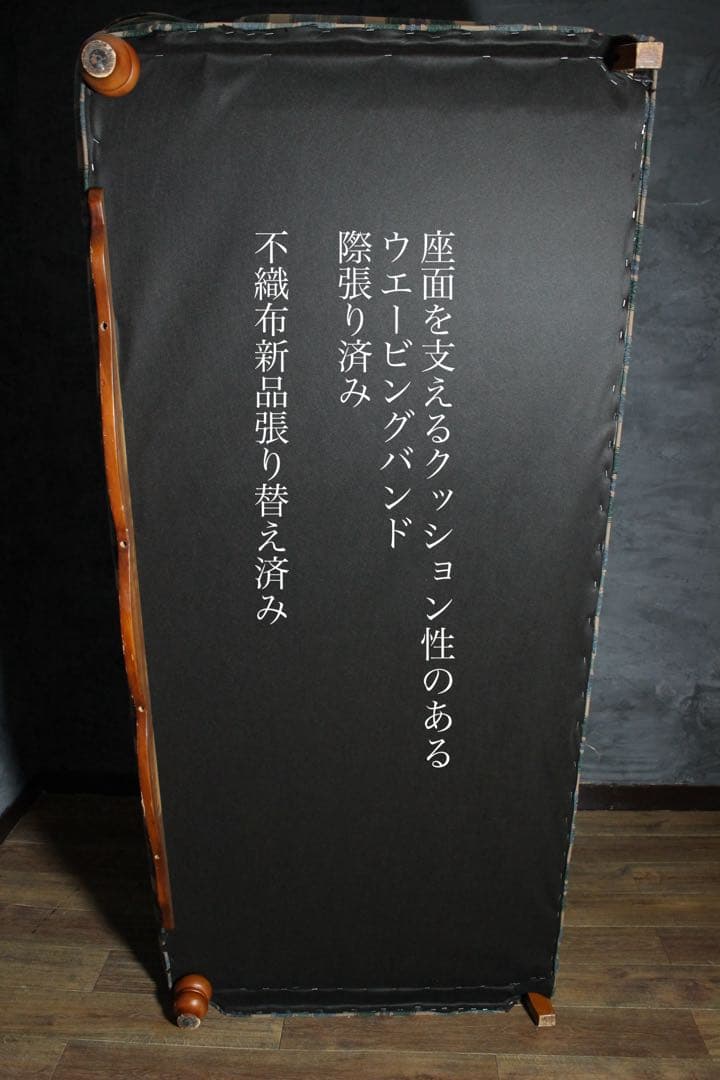 座面を支えるクッション性のある
ウエービングバンド
際張り済み
不織布新品張り替え済み